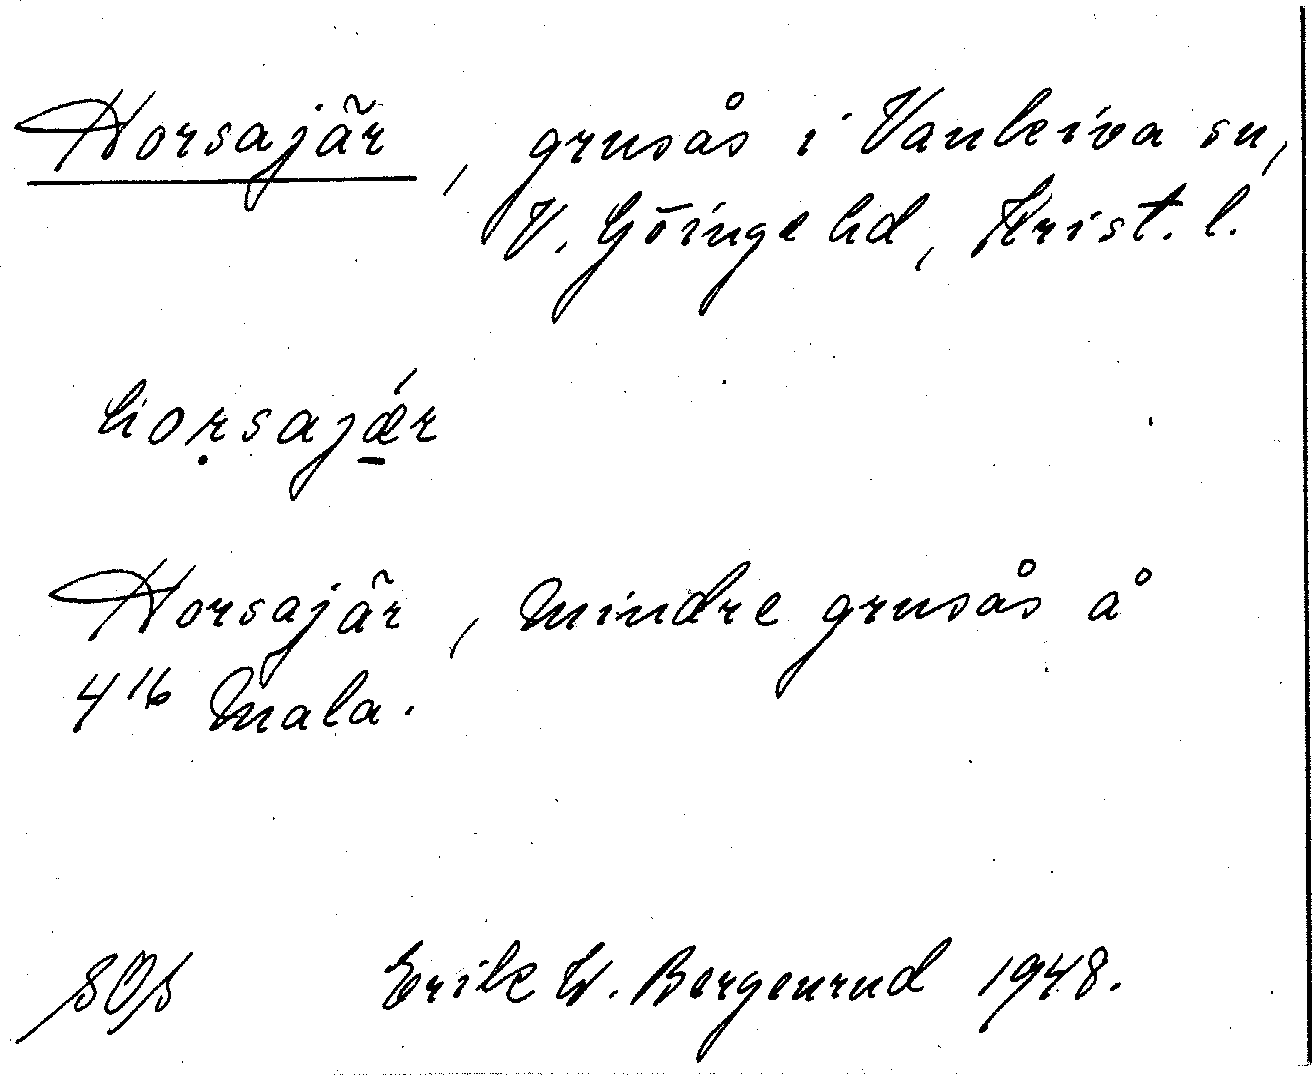 Horsajär, grusås i Vankiva sn,
V. Göinge hd, Krist. l.
hoṛsajǽ̱r
Horsajär, mindre grusås å
4¹⁶ Mala.
SOS Erik W. Bergenrud 1948.